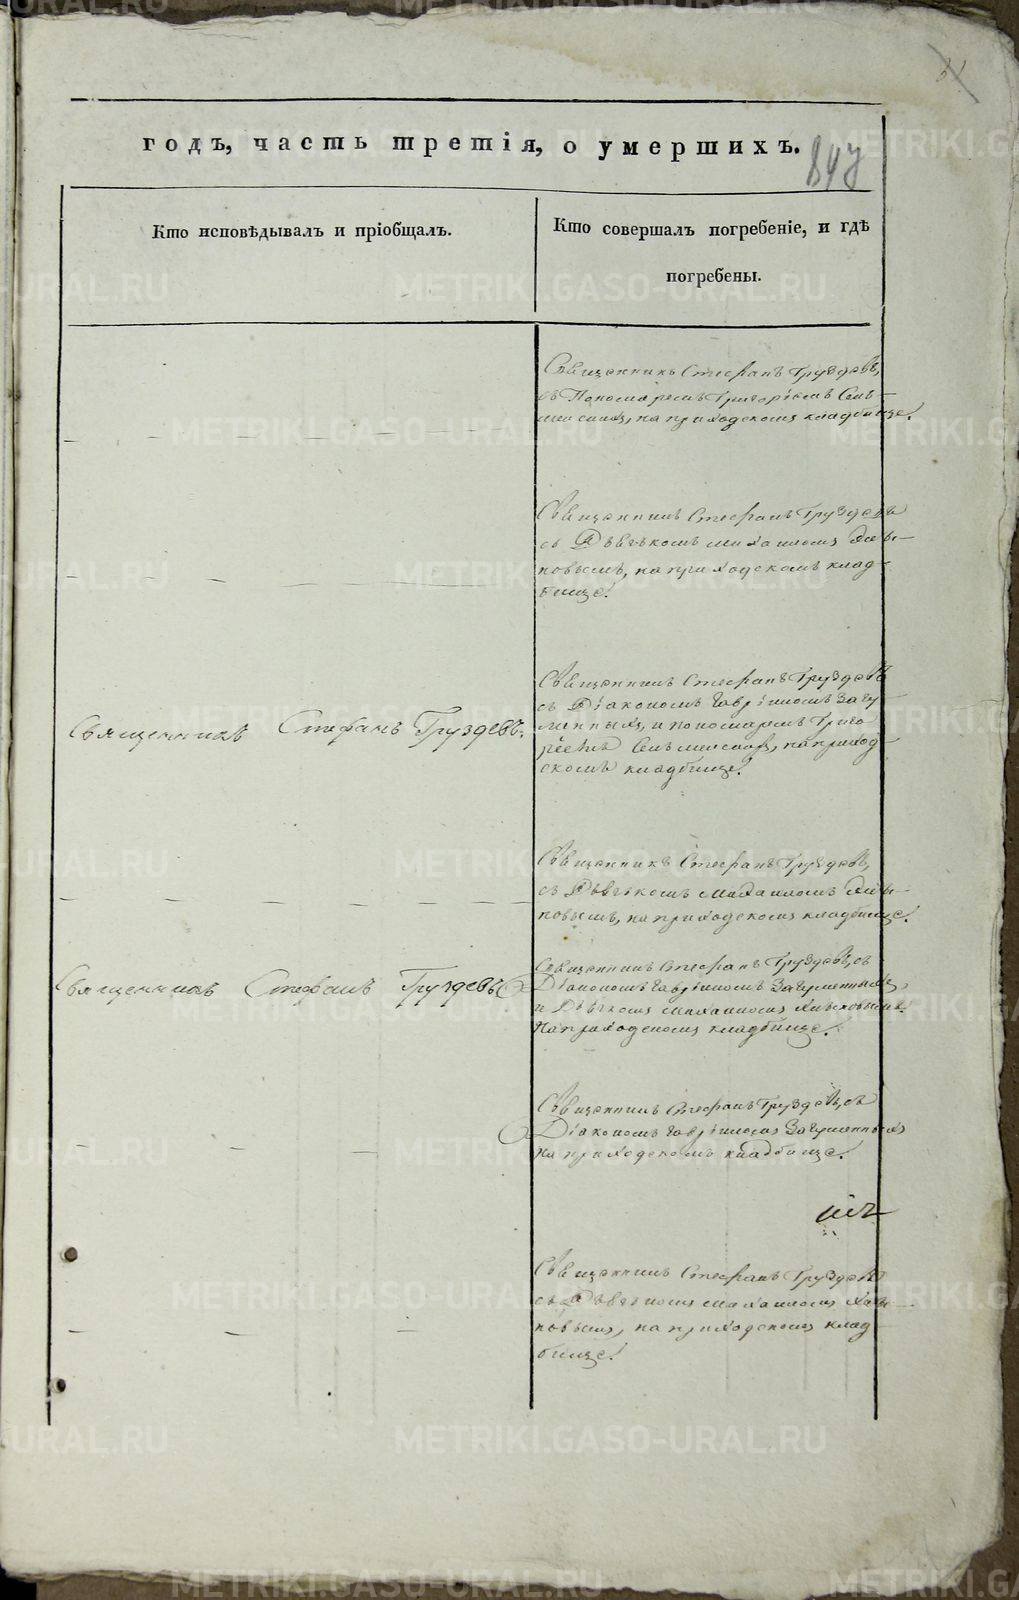 годъ, часть третія, о умершихъ.
Кто исповѣдывалъ и пріобщалъ.
Кто совершалъ погребеніе, и гдѣ
погребены.
Священникъ Стефанъ Груздевъ,
съ Пономаремъ Григоріемъ
на приходскомъ кладбище.
Священникъ Стефанъ Груздевъ
съ Дьячкомъ Михаиломъ
повымъ, на приходскомъ клад-
бище.
Священникъ Стефанъ Груздевъ.
Священникъ Стефанъ Груздевъ
съ Діакономъ Гавріиломъ Загу-
менныхъ, и пономаремъ Григо
ріемъ на приход-
скомъ кладбище.
Священникъ Стефанъ Груздевъ,
съ Дьячкомъ Михаиломъ
повымъ, на приходскомъ кладбище.
Священникъ Стефанъ Груздевъ
Священникъ Стефанъ Груздевъ, съ
Діакономъ Гавріиломъ Загуменныхъ,
и Дьячкомъ Михаиломъ
на приходскомъ кладбище.
Священникъ Стефанъ Груздевъ, съ
Діакономъ Гавріиломъ Загуменныхъ
на приходскомъ кладбище.
Священникъ Стефанъ Груздевъ
съ Дьячкомъ Михаиломъ
повымъ, на приходскомъ клад-
бище.
METRIKI.GASO-URAL.RU